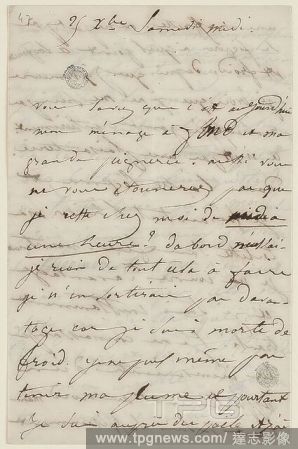 47
25 Xbre Samedi midi.
vous savez que c'est aujourd'hui
mon ménage à fond et ma
grande peignerie. ainsi vous
ne vous étonnerez pas que
je reste chez moi de midi à
une heure? d'abord
je de tout cela à faire
je n'en sortirais pas davan-
tage car je suis morte de
froid. je ne puis même pas
tenir ma plume et pourtant
je suis auprès du poële
TPG
www.tpgnews.com/達志影像